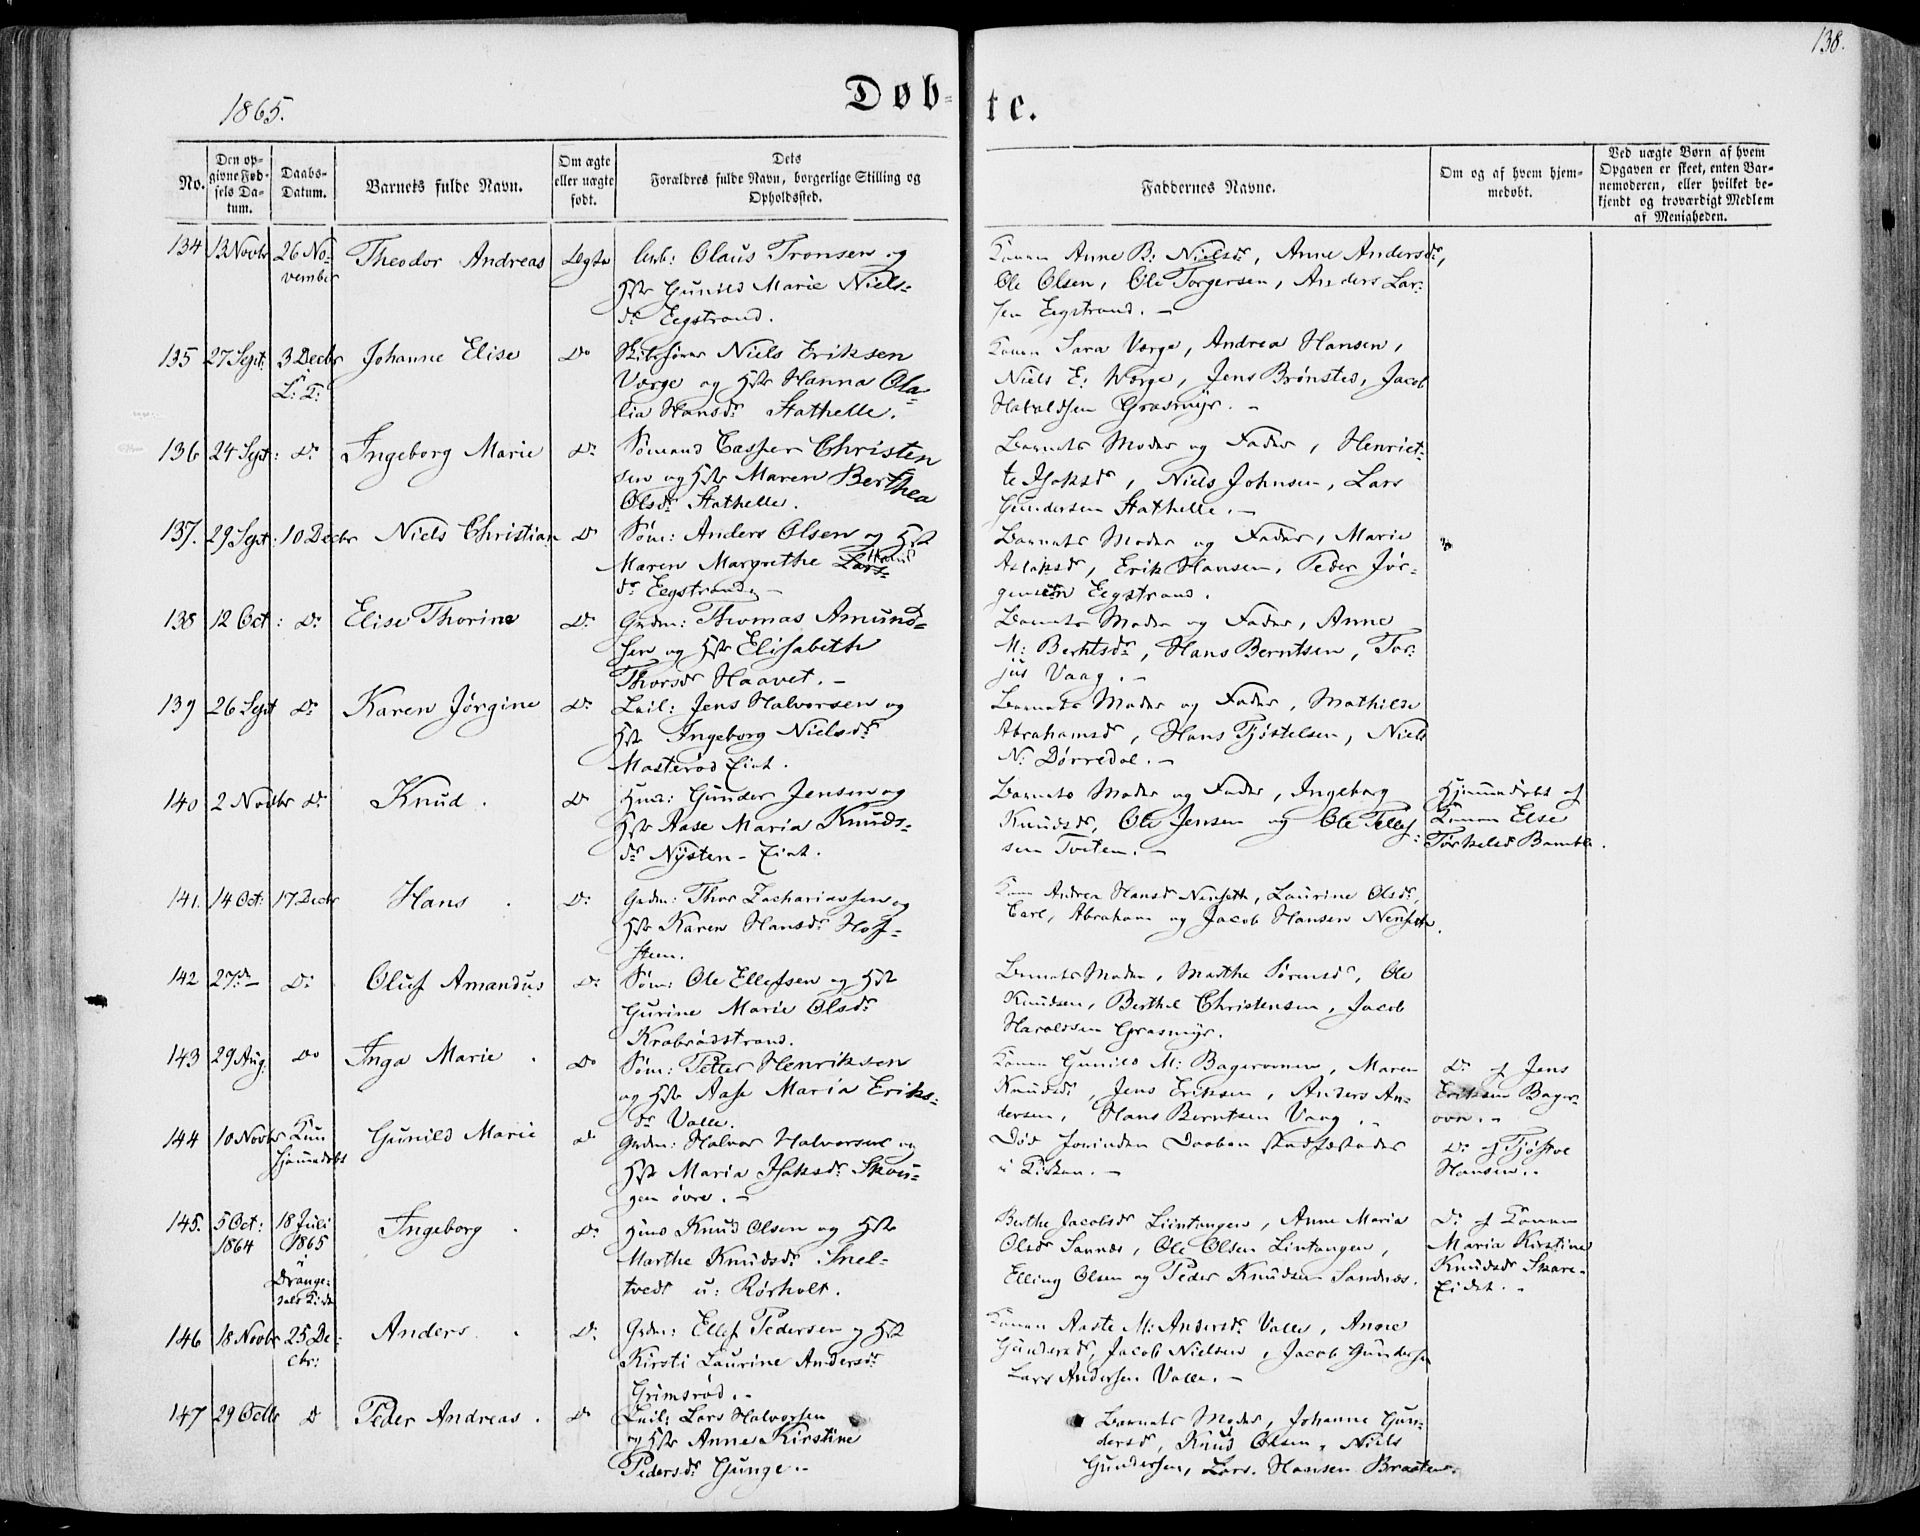 138.
1865.
Døb-
te.
No.
Den op-
givne Fød-
sels Da-
tum.
Daabs-
Datum.
Barnets fulde Navn.
Om ægte
eller uægte
født.
Dets
Forældres fulde Navn, borgerlige Stilling og
Opholdssted.
Faddernes Navne.
Om og af hvem hjem-
medøbt.
Ved uægte Børn af hvem
Opgaven er skeet, enten Bar-
nemoderen, eller hvilket be-
kjendt og troværdigt Medlem
af Menigheden.
134 13 Novbr 26 No-
vember
Theodor Andreas Ægte
Arb: Olaus Tronsen og
Hst Gunild Marie Niels-
dr Eegstrand.
Konen Anne B: Nielsdr, Anne Andersdr,
Ole Olsen, Ole Torgersen, Anders Lar-
sen Eegstrand. -
135 27 Sept: 3 Decbr
L: T:
Johanne Elise Do
Skibsfører Niels Eriksen
Værge og Hst Hanna Ola-
lia Hansdr Stathelle.
Konen Sara Værge, Andrea Hansen,
Niels E: Værge, Jens Brønsted, Jacob
Haraldsen Grasmyr. -
136 24 Sept: Do Ingeborg Marie Do
Sømand Casper Christen
sen og Hst Maren Berthea
Olsdr Stathelle.
Barnets Moder og Fader, Henriet-
te Isaksdr, Niels Johnsen, Lars
Gundersen Stathelle. -
137. 29 Sept: 10 Decbr Niels Christian Do
Søm: Anders Olsen og Hst
Maren Margrethe Lars- Hans
dr Eegstrand -
Barnets Moder og Fader, Marie
Aslaksdr, Erik Hansen, Peder Jør-
gensen Eegstrand.
138 12 Oct: Do Elise Thorine Do
Grdm: Thomas Amund-
sen og Hst Elisabeth
Thorsdr Haavet. -
Barnets Moder og Fader, Anne
M: Berntsdr, Hans Berntsen, Tor-
jus Vaag. -
139 26 Sept Do Karen Jørgine Do
Leil: Jens Halvorsen og
Hst Ingeborg Nielsdr
Masterød Eiet.
Barnets Moder og Fader, Mathilde
Abrahamsdr, Hans Tjøstelsen, Niels
N: Dørredal. -
140 2 Novbr Do Knud. Do
Husm: Gunder Jensen og
Hst Aase Maria Knuds-
dr Nysten - Eiet.
Barnets Moder og Fader, Ingeborg
Knudsdr, Ole Jensen og Ole Tellef-
sen Tveten. -
Hjemmedøbt af
Konen Else
Torkelsd Bamble.
141. 14 Oct: 17 Decbr Hans. Do
Grdm: Thor Zachariassen og
Hst Karen Hansdr Hof-
steen.
Kone Andrea Hansd Nenseth, Laurine Olsdr,
Carl, Abraham og Jacob Hansen Nenseth.
142 27de - Do Oluf Amandus Do
Søm: Ole Ellefsen og Hst
Gurine Marie Olsdr
Krabrødstrand.
Barnets Moder, Marthe Sørensdr, Ole
Knudsen, Berthel Christensen, Jacob
Haraldsen Grasmyr.
143 29 Aug. Do Inga Marie. Do
Søm: Petter Henriksen
og Hst Aase Maria Eriks-
dr Valle.
Konen Gunild M: Bagerovnen, Maren
Knudsdr, Jens Eriksen, Anders An-
dersen, Hans Berntsen Vaag. -
Do af Jens
Eriksen Bager-
ovn. -
144 10 Novbr Kun
hjemmedøbt
Gunild Marie Do
Grdm: Halvor Halvorsen og
Hst Maria Isaksdr Skou-
gen øvre. -
Død forinden Daaben stadfæstedes
i Kirken. -
Do af Tjøstel
Hansen. -
145. 5 Oct:
1864
18 Juli
1865
i
Drange-
dals Kirke
Ingeborg. Do
Huus Knud Olsen og Hst
Marthe Knudsdr Snel-
tvedt u: Rørholt.
Berthe Jacobsdr Liintangen, Anne Maria
Olsdr Sannæs, Ole Olsen Lintangen,
Elling Olsen og Peder Knudsen Sandnæs.
Do af Konen
Maria Kirstine
Knudsdr Skare-
Eidet. -
146 18 Novbr 25 De-
cbr:
Anders. Do
Grdm: Ellef Pedersen og Hst
Kirsti Laurine Andersdr
Grimsrød. -
Konen Aaste M: Andersdr Valle, Anne
Gundersd, Jacob Nielsen, Jacob Gundersen
Lars Andersen Valle. -
147 29 Octbr Do Peder Andreas. Do
Leil: Lars Halvorsen
og Hst Anne Kirstine
Pedersdr Gunge. -
Barnets Moder, Johanne Gun-
dersdr, Knud Olsen, Niels
Gundersen, Lars Hansen Braaten.